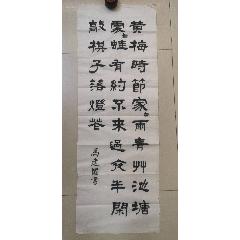 黄梅時節家〻雨青艸池塘
處〻蛙有約不來過夜半閑
敲棋子落燈花
馬建書